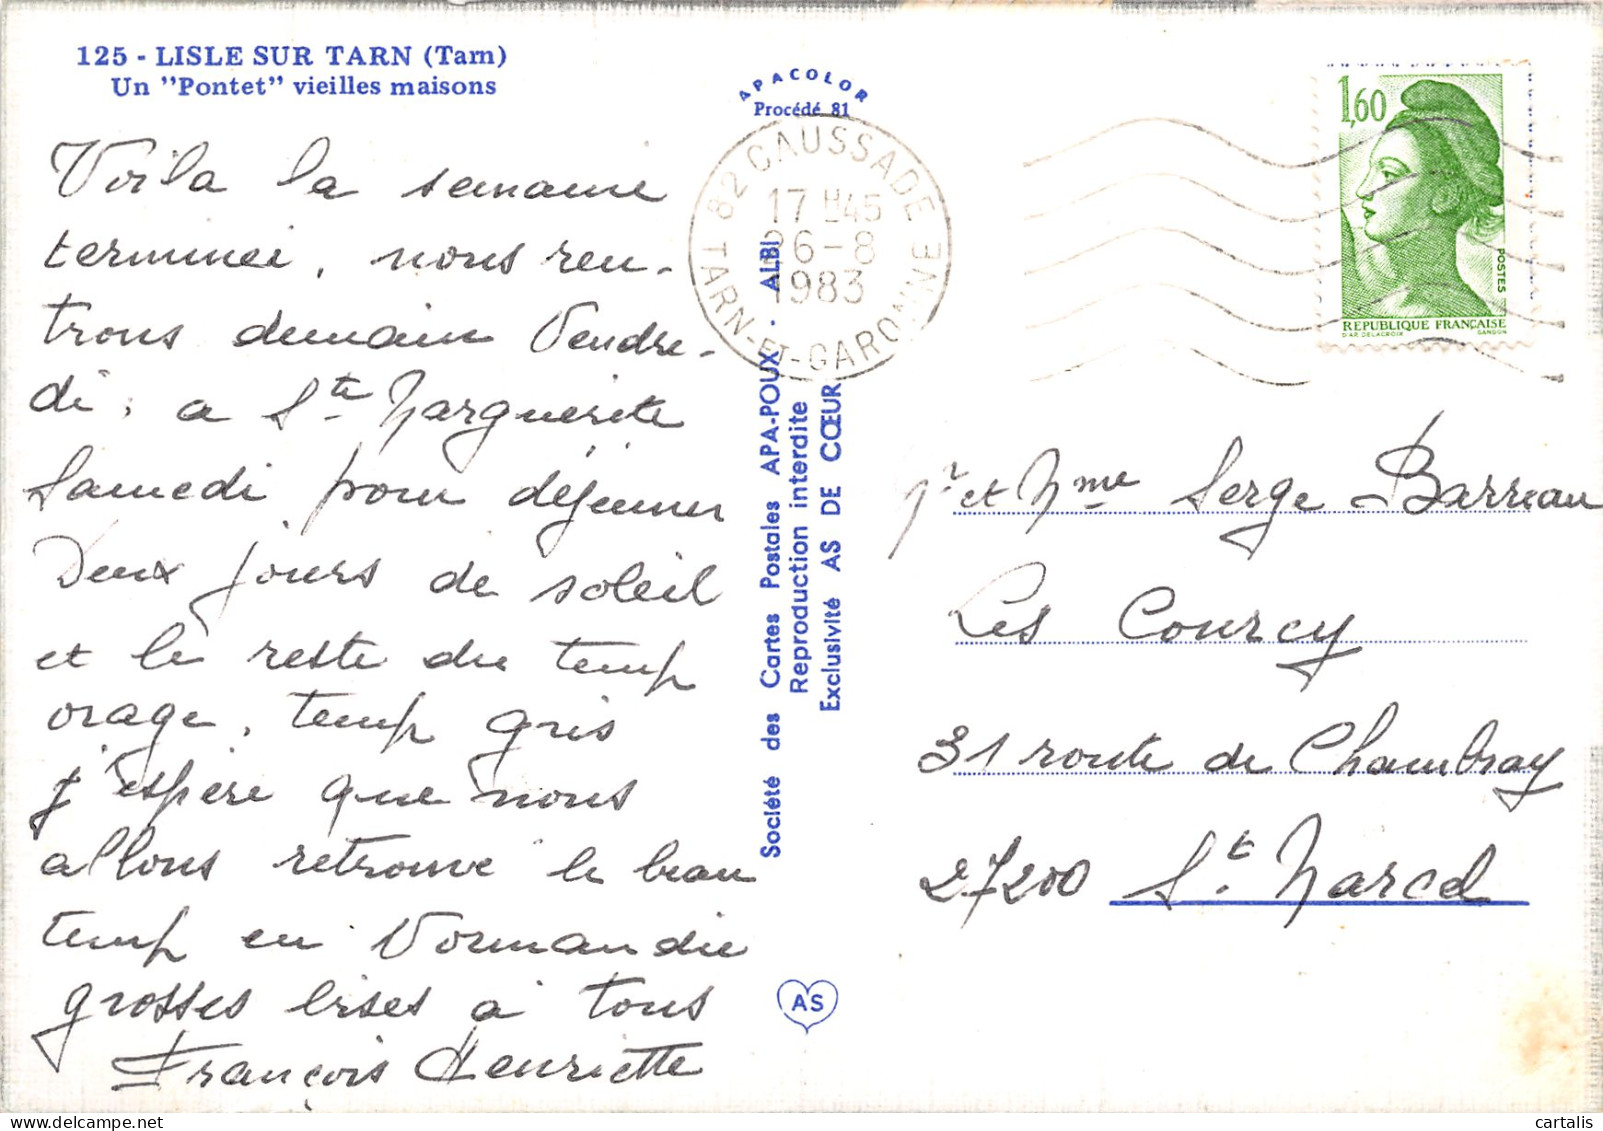 125 - LISLE SUR TARN (Tarn)
Un "Pontet" vieilles maisons
Voila la semaine
terminei, nous ren-
trons demain Vendre-
di, a Ste Marguerite
Samedi pour déjeuner
Deux jours de soleil
et le reste du temp
orage, temp gris
j'espère que nous
allons retrouve le beau
temp en Normandie
grosses bises a tous
François Henriette
APACOLOR
Procédé 81
Société des Cartes Postales APA-POUX - ALBI
Reproduction interdite
Exclusivité AS DE CŒUR
AS
82 CAUSSADE
17 H45
26-8
1983
TARN-ET-GARONNE
1,60
POSTES
REPUBLIQUE FRANÇAISE
D'AP. DELACROIX GANDON
Mr et Mme Serge Barreau
Les Courcy
31 route de Chambray
27200 St. Marcel
cartalis